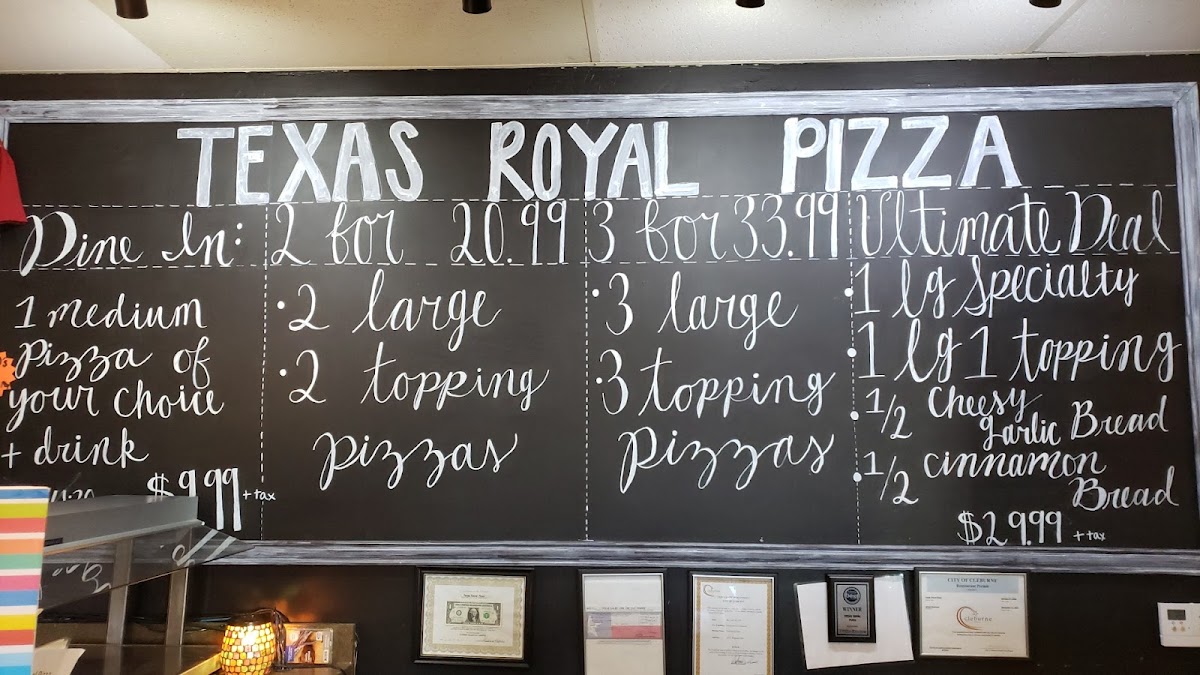 TEXAS ROYAL PIZZA
Dine In:
1 medium
pizza of
your choice
+ drink
$9.99 + tax
2 for 20.99
• 2 large
• 2 topping
pizzas
3 for 33.99
• 3 large
• 3 topping
pizzas
Ultimate Deal
• 1 lg Specialty
• 1 lg 1 topping
• 1/2 Cheesy
garlic Bread
• 1/2 cinnamon
Bread
$29.99 + tax
WINNER
CITY OF CLEBURNE
cleburne